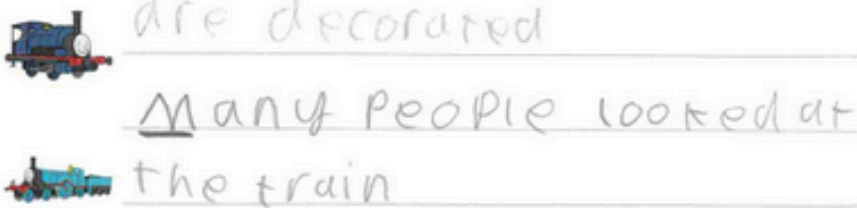 are decorated
Many people looked at
the train